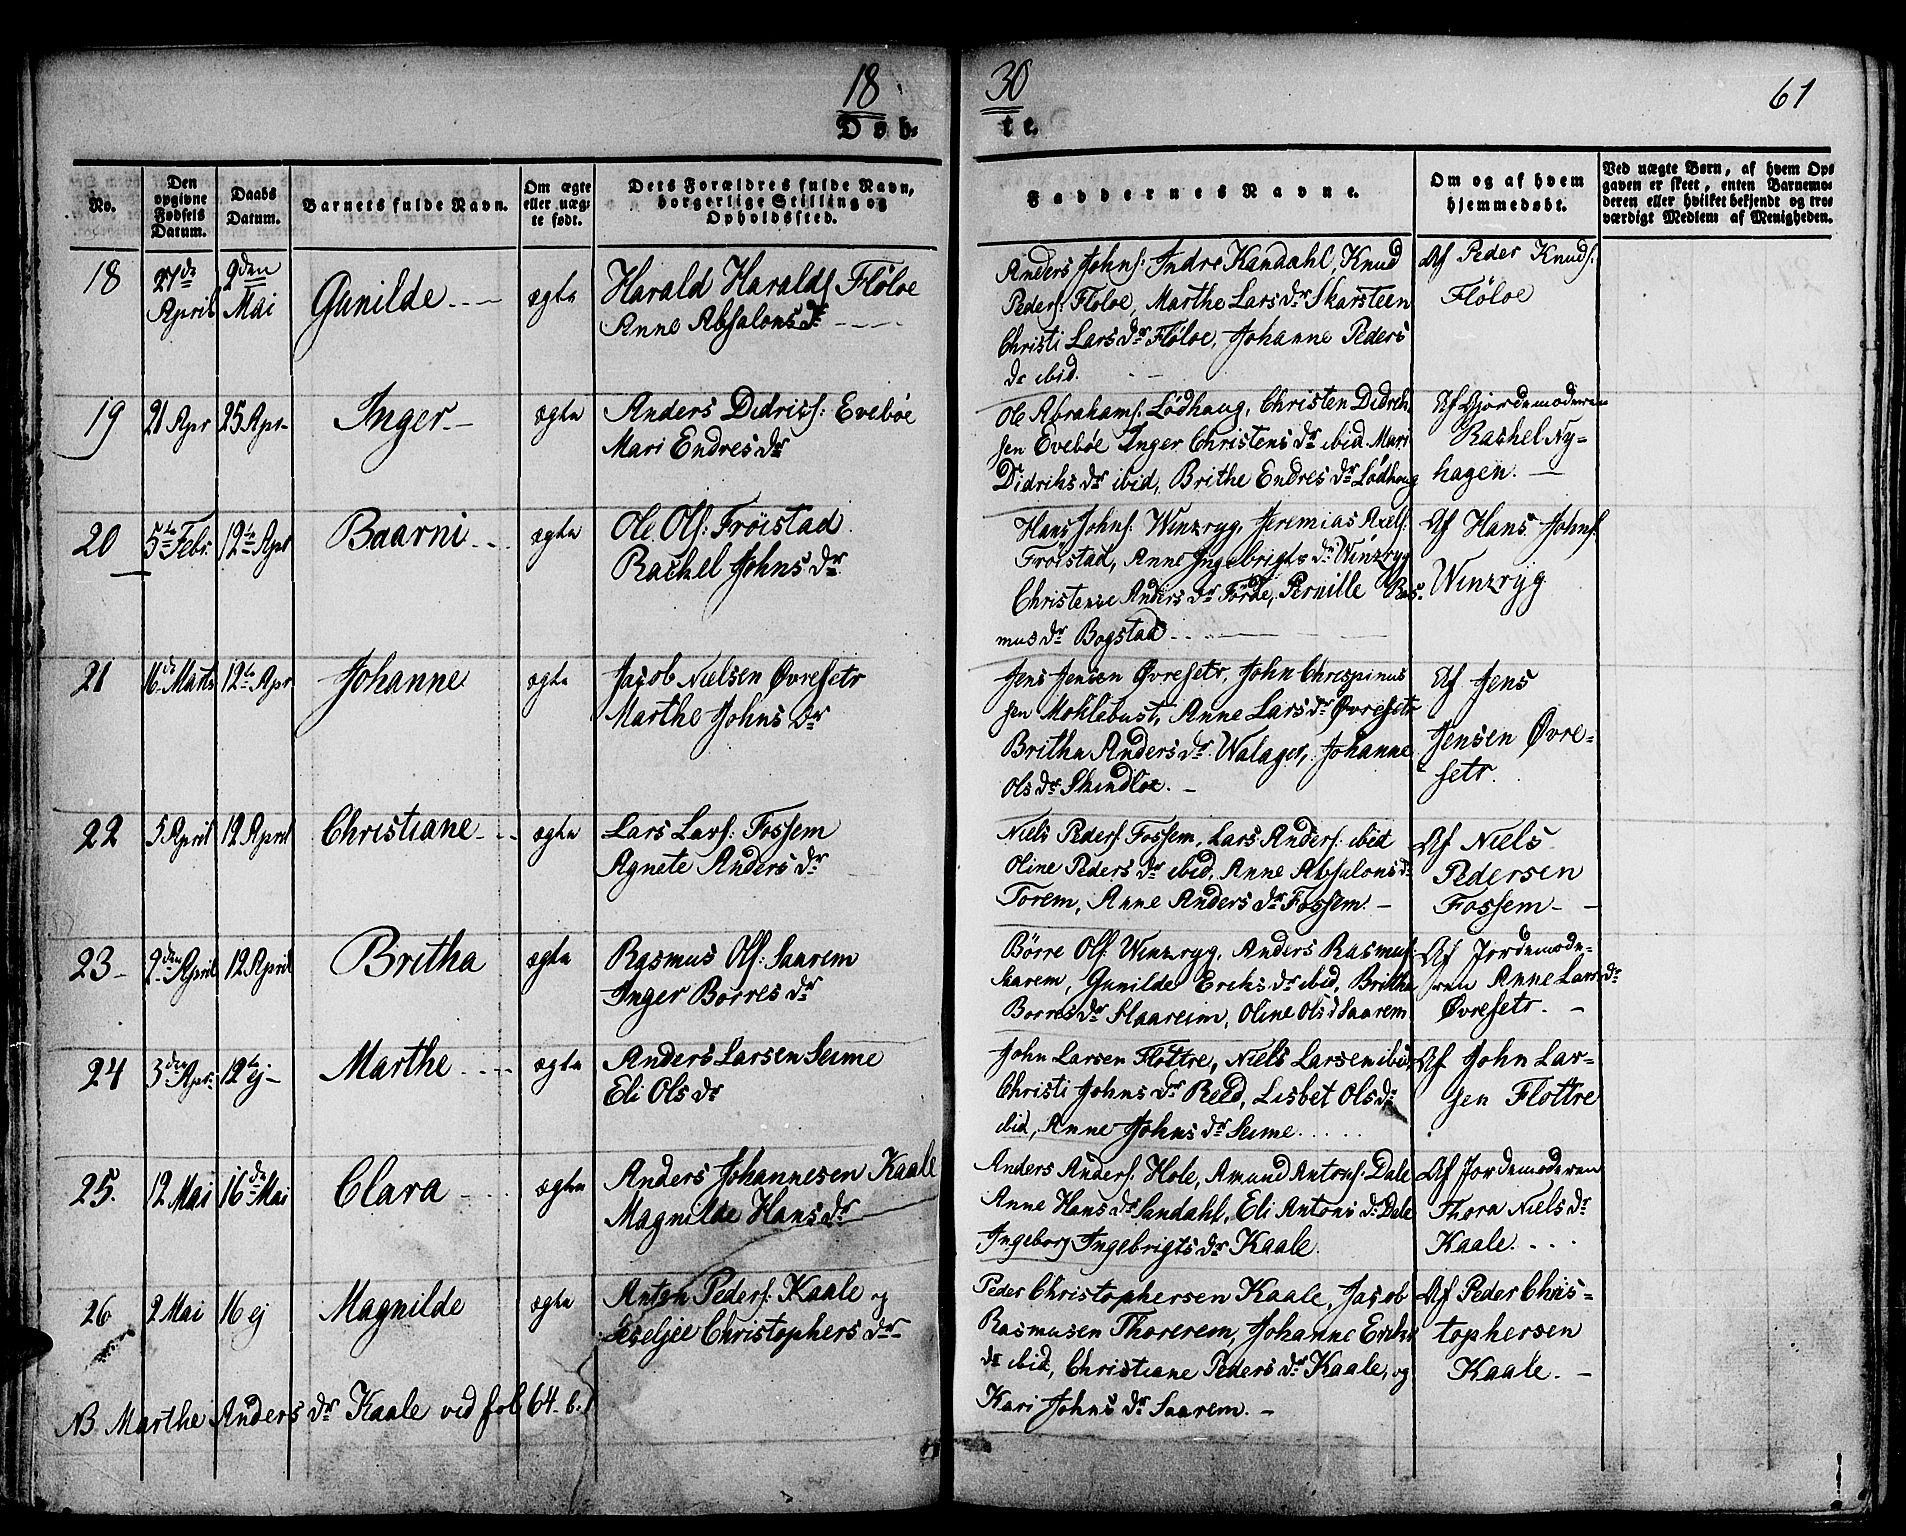 18 30 61
Døb- te.
No.
Den opgivne Fødsels Datum.
Daabs Datum.
Barnets fulde Navn.
Om ægte eller uæg- te født.
Dets Forældres fulde Navn, borgerlige Stilling og Opholdssted.
Faddernes Navne.
Om og af hvem hjemmedøbt.
Ved uægte Børn, af hvem Op- gaven er skeet, enten Barnemo- deren eller hvilket bekjendt og tro- værdigt Medlem af Menigheden.
18 27de April 2den Mai Gunilde ægte
Harald Haralds Fløloe
Anne Absalons dr
Anders Johns: Indre Kandahl, Knud
Peders: Fløloe, Marthe Lars dr Skarsteen
Christi Lars dr Fløloe, Johanne Peders
dr ibid.
Af Peder Knuds:
Fløloe
19 21 Apr 25 Apr Inger ægte
Anders Didrics: Evebøe
Mari Endres dr
Ole Abrahams: Lødhaug, Christen Didrik
sen Evebøe Inger Christens dr ibid. Mari
Didriks dr ibid, Brithe Endres dr Lødhaug
Af Gjordemoderen
Rachel Ny-
hagen.
20 5te Febr. 12te Apr Baarni ægte
Ole Ols: Frøistad
Rachel Johns dr
Hans Johns: Winzryg, Jeremias Axels:
Frøistad, Anne Ingebrigts dr Winzryg
Christense Anders dr Førde, Pernille Ras-
mus dr Bogstad
Af Hans Johns:
Winzryg
21 16de Marts 12te Apr Johanne ægte
Jacob Nielsen Øvresetr
Marthe Johns dr
Jens Jensen Øvresetr, John Chrespinus
sen Moklebust, Anne Lars dr Øvresetr
Britha Anders dr Walager, Johanne
Ols dr Skindloe.
Af Jens
Jensen Øvre-
setr.
22 5 April 12 April Christiane ægte
Lars Lars: Fossem
Agnete Anders dr
Niels Peders Fossem, Lars Anders: ibid
Oline Peders dr ibid, Anne Absalons dr
Torem, Anne Anders dr Fossem
Af Niels
Pedersen
Fossem
23 2den April 12 April Britha ægte
Rasmus Ols: Saarem
Inger Borres dr
Börre Ols: Winzryg, Anders Rasmus:
Saarem, Gunilde Eriks dr ibid, Britha
Borres dr Haareim, Oline Ols dr Saarem
Af Jordemode-
ren Anne Lars dr
Øvresetr.
24 3den Apr: 12te ej Marthe ægte
Anders Larsen Seime
Eli Ols dr
John Larsen Flottre, Niels Larsen ibid
Christi Johns dr Reed, Lisbet Ols dr
ibid, Anne Johns dr Seime
Af John Lar-
sen Flottre
25. 12 Mai 16de Mai Clara ægte
Anders Johannesen Kaale
Magnilde Hans dr
Anders Anders: Hole, Amund Antons Dale
Anne Hans dr Sandahl, Eli Antons dr Dale
Ingeborg Ingebrigts dr Kaale.
Af Jordemoderen
Thora Niels dr
Kaale.
26 2 Mai 16 ej Magnilde ægte
Anton Peders: Kaale og
Seseljee Christophers dr
Peder Christophersen Kaale, Jacob
Rasmusen Thorerem, Johanne Eriks
dr ibid, Christiane Peders dr Kaale, og
Kari Johns dr Saarem.
Af Peder Chris-
tophersen
Kaale.
NB Marthe Anders dr Kaale ved fol: 64. b.